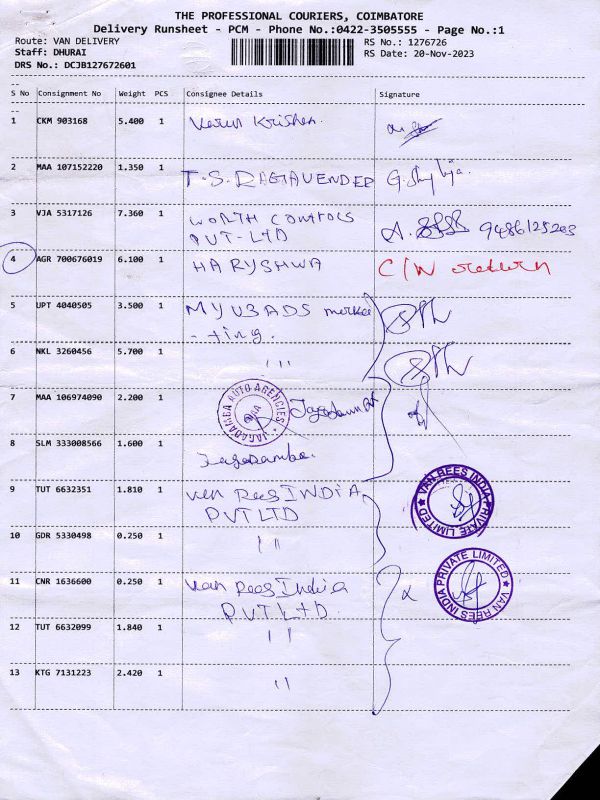 THE PROFESSIONAL COURIERS, COIMBATORE
Delivery Runsheet - PCM - Phone No.:0422-3505555 - Page No.:1
Route: VAN DELIVERY RS No.: 1276726
Staff: DHURAI RS Date: 20-Nov-2023
DRS No.: DCJB127672601
S No Consignment No Weight PCS Consignee Details Signature
1 CKM 903168 5.400 1 Varun Krishna.
2 MAA 107152220 1.350 1 T.S. RAGHAVENDER
3 VJA 5317126 7.360 1 WORTH CONTROLS
PVT-LTD A. 9486125203
4 AGR 700676019 6.100 1 HARYSHWA C/N return
5 UPT 4040505 3.500 1 MYUBADS marke
- ting.
6 NKL 3260456 5.700 1 ' ' '
7 MAA 106974090 2.200 1 JAGADAMBA AUTO AGENCIES
8 SLM 333008566 1.600 1 Jagadamba.
9 TUT 6632351 1.810 1 Van Rees INDIA
PVT LTD VAN REES INDIA PRIVATE LIMITED
10 GDR 5330498 0.250 1 ' '
11 CNR 1636600 0.250 1 Van Rees India
PVT Ltd. VAN REES INDIA PRIVATE LIMITED
12 TUT 6632099 1.840 1 ' '
13 KTG 7131223 2.420 1 ' '